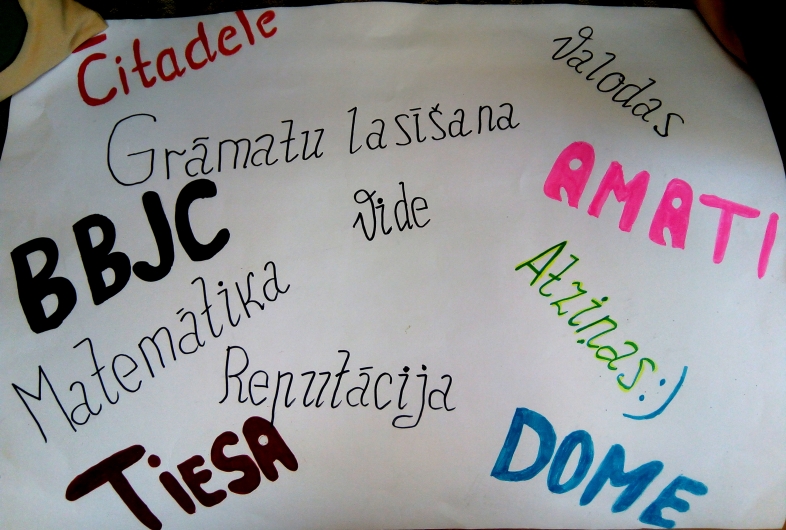 Citadele
Valodas
Grāmatu lasīšana
AMATI
Vide
BBJC
Atziņas:)
Matemātika
Reputācija
TiESA
DOME